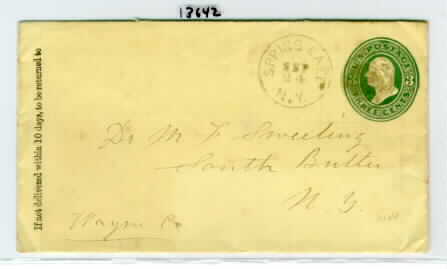 13642
If not delivered within 10 days, to be returned to
SPRING LAKE
SEP
24
N.Y.
U.S. POSTAGE
THREE CENTS
Dr M. F. Sweeting
South Butler
N. Y.
Wayne Co